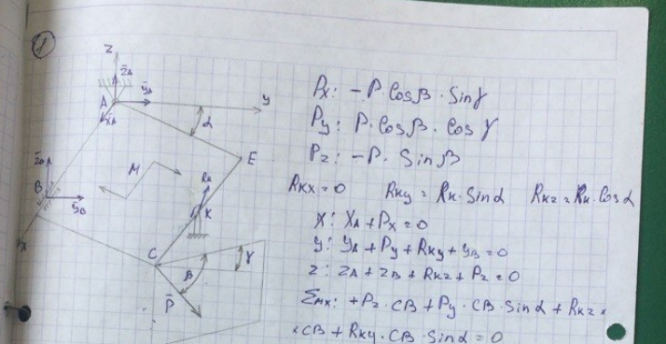 1
z
Z̄A
ȳA
A
y
X̄A
α
E
M
Z̄B
RK
B
ȳB
K
X
C
γ
β
P̄
Px: -P·Cosβ·Sinγ
Py: P·Cosβ·Cosγ
Pz: -P·Sinβ
RKX=0 RKy=RK·Sinα RKz=RK·Cosα
X: XA+Px=0
y: yA+Py+RKy+yB=0
z: zA+zB+RKz+Pz=0
Σmx: +Pz·CB+Py·CB·Sinα+RKz×
×CB+RKy·CB·Sinα=0